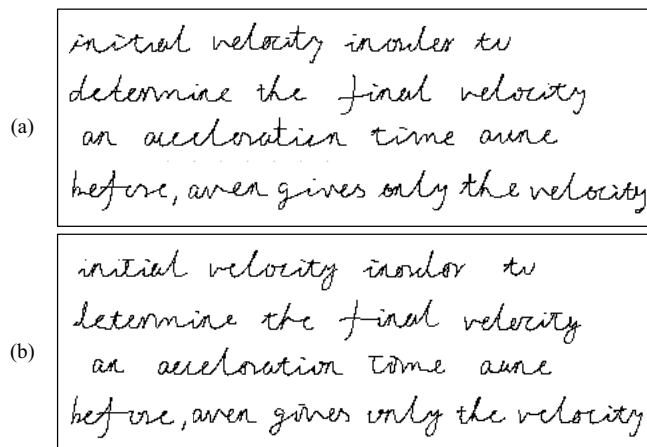 (a)
initial velocity inorder to
determine the final velocity
an acceloration time aune
before, aven gives only the velocity
(b)
initial velocity inordor to
determine the final velocity
an acceloration tome aune
before, aven goves only the velocity